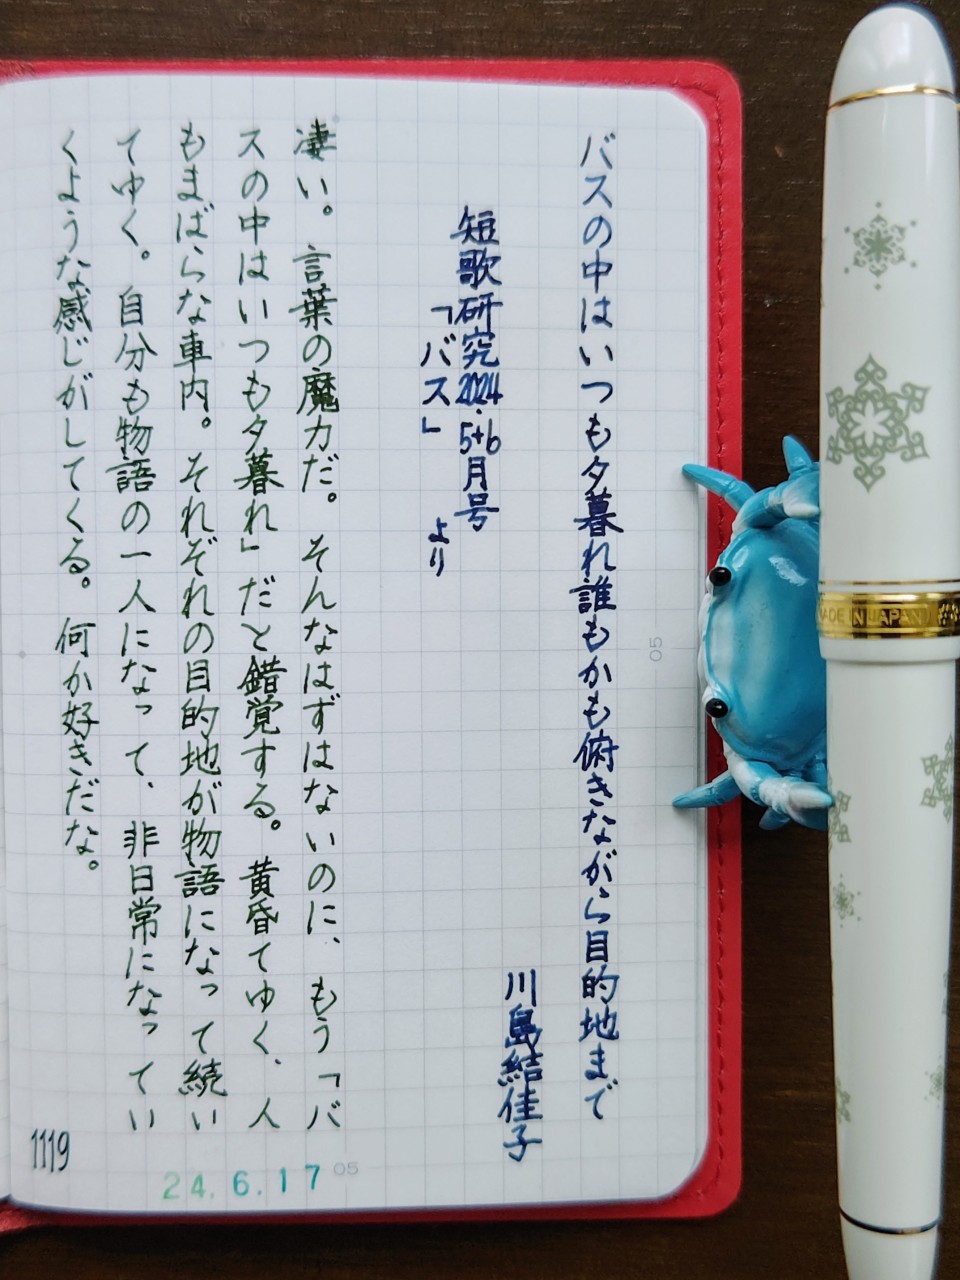 バスの中はいつも夕暮れ誰もかも俯きながら目的地まで
川島結佳子
短歌研究2024.5+6月号
「バス」より
凄い。言葉の魔力だ。そんなはずはないのに、もう「バ
スの中はいつも夕暮れ」だと錯覚する。黄昏てゆく、人
もまばらな車内。それぞれの目的地が物語になって続い
てゆく。自分も物語の一人になって、非日常になってい
くような感じがしてくる。何か好きだな。
1119
24.6.17
05
05
MADE IN JAPAN